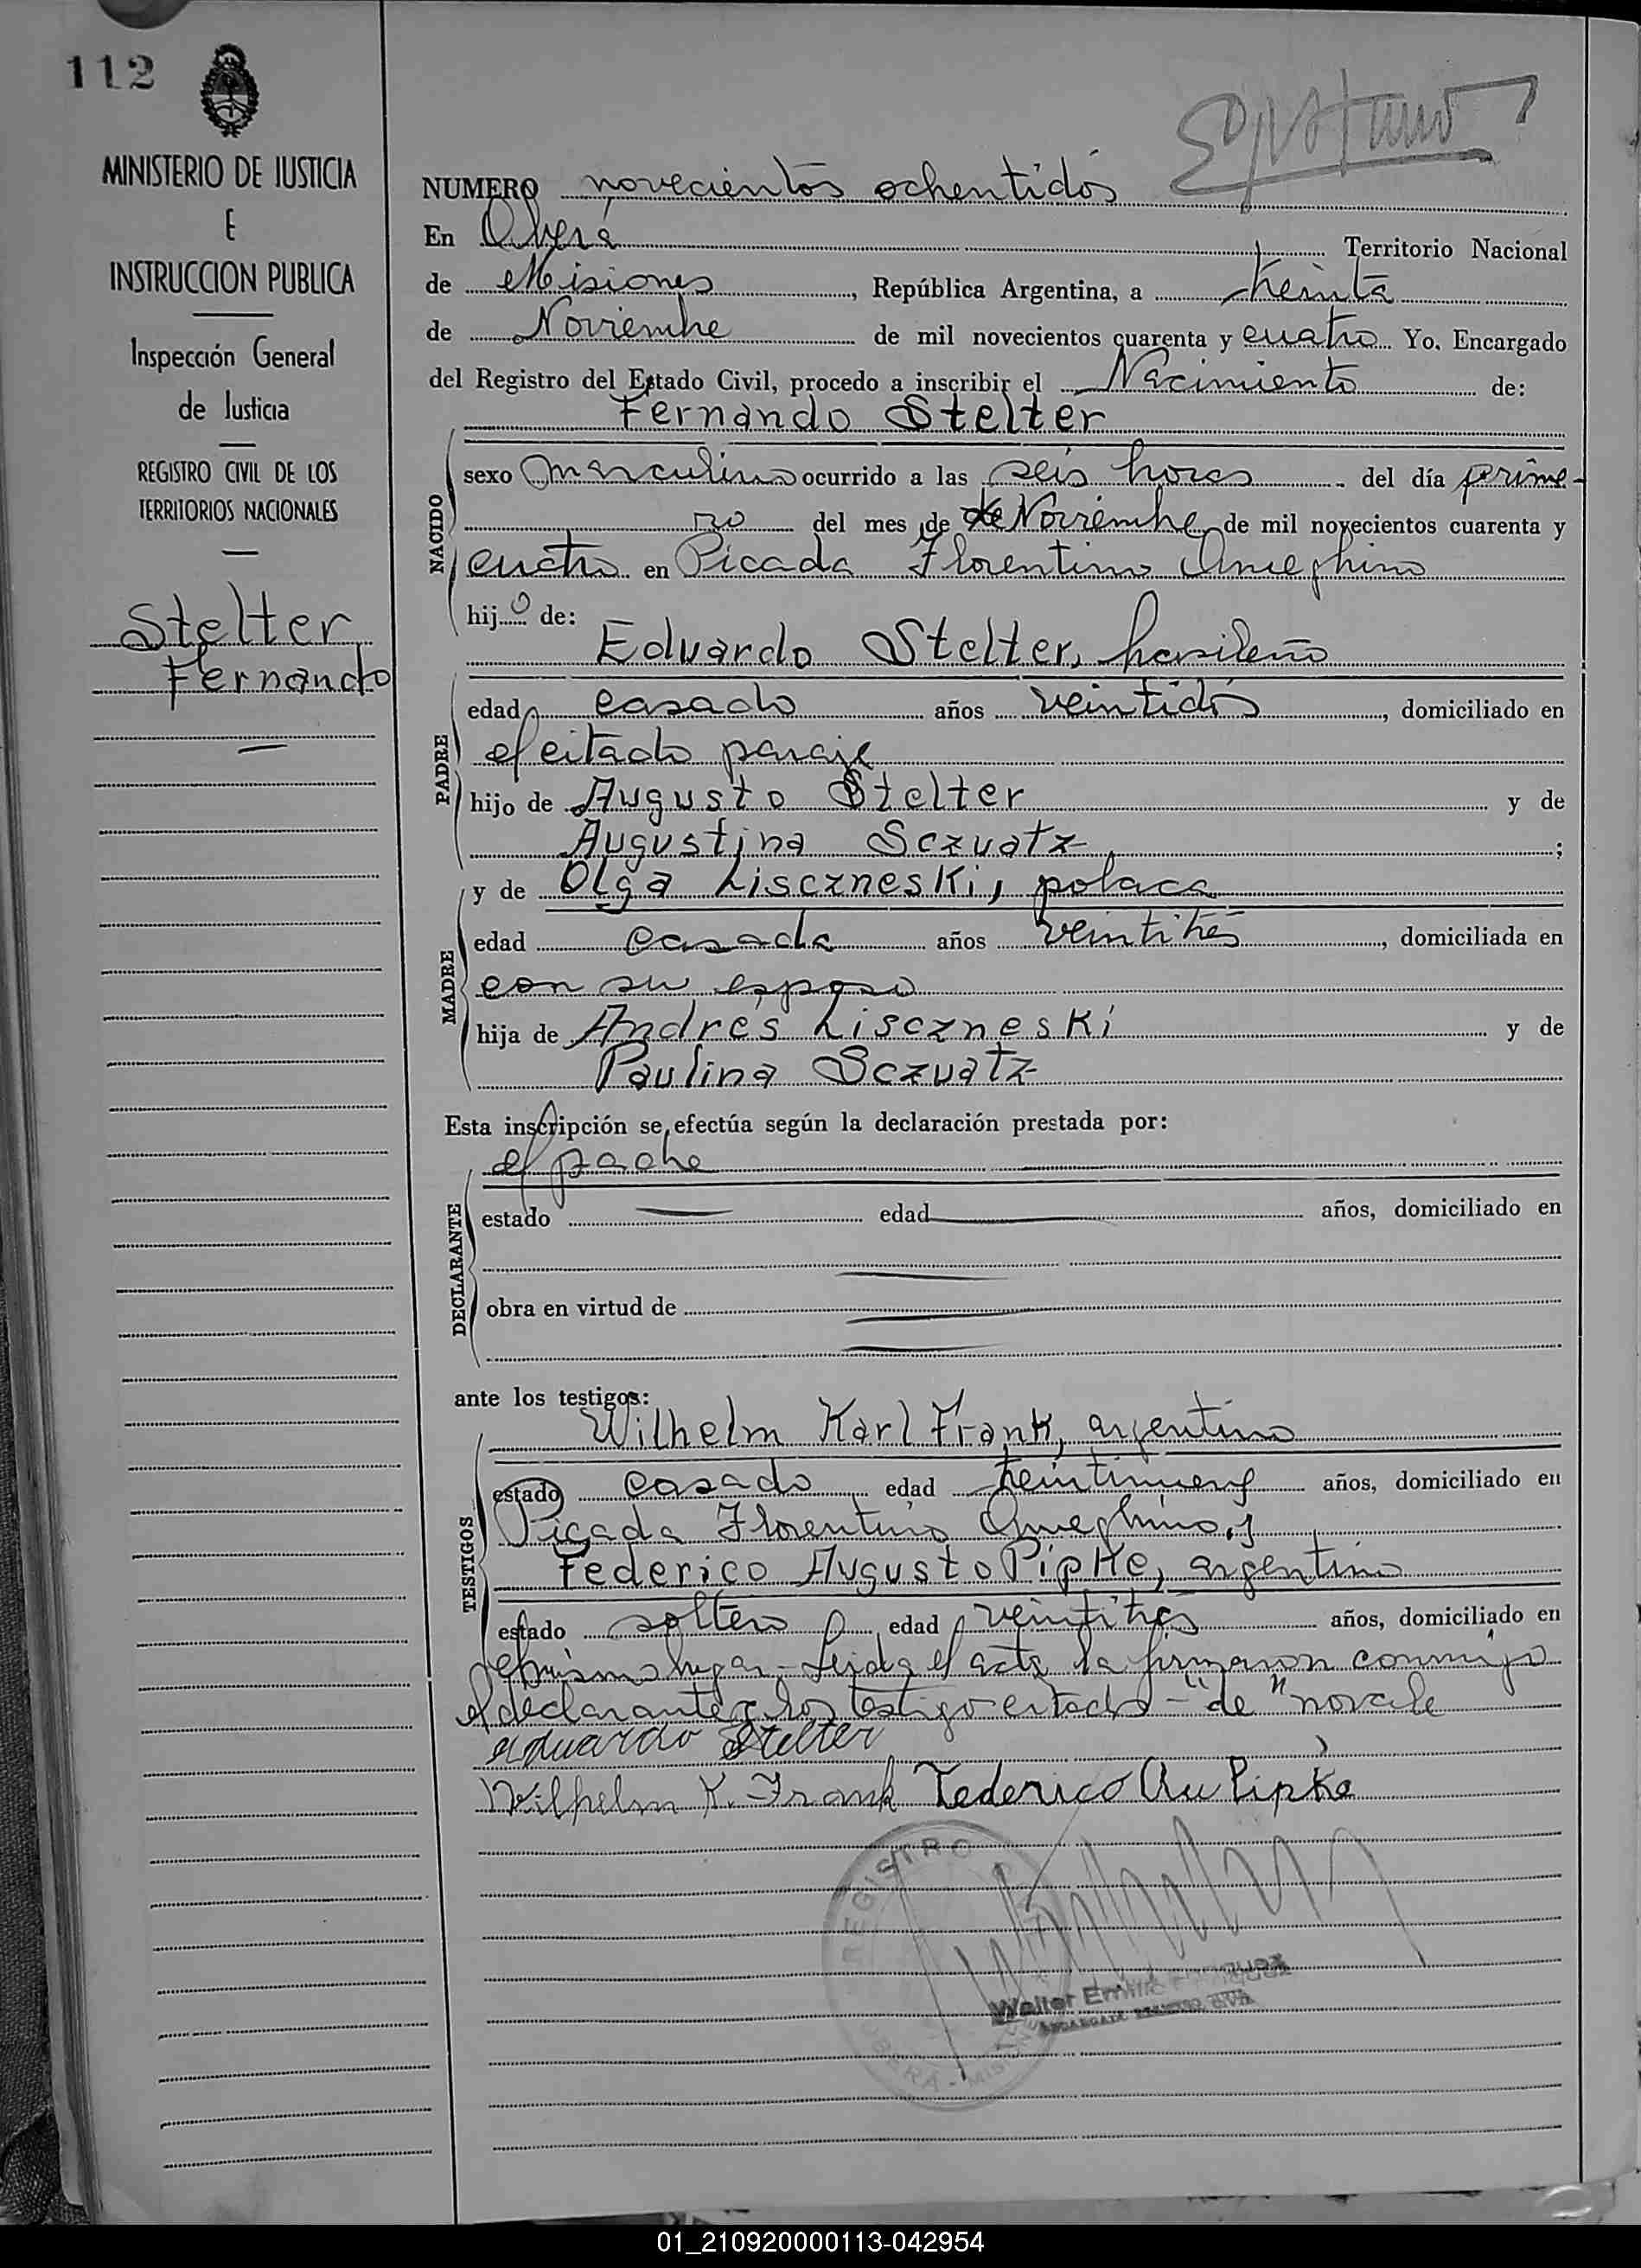 112
MINISTERIO DE JUSTICIA
E
INSTRUCCION PUBLICA
Inspección General
de Justicia
REGISTRO CIVIL DE LOS
TERRITORIOS NACIONALES
Stelter
Fernando
NUMERO novecientos ochentidós
En Oberá Territorio Nacional
de Misiones, República Argentina, a treinta
de Noviembre de mil novecientos cuarenta y cuatro Yo. Encargado
del Registro del Estado Civil, procedo a inscribir el Nacimiento de:
Fernando Stelter
NACIDO
sexo masculino ocurrido a las seis horas del día prime-
ro del mes de de Noviembre de mil novecientos cuarenta y
cuatro en Picada Florentino Ameghino
hijo de:
Eduardo Stelter, brasileño
PADRE
edad casado años veintidós, domiciliado en
el citado paraje
hijo de Augusto Stelter y de
Augustina Sczuatz ;
y de Olga Lisczneski, polaca
MADRE
edad casada años veintitrés, domiciliada en
con su esposo
hija de Andrés Lisczneski y de
Paulina Sczuatz
Esta inscripción se efectúa según la declaración prestada por:
el padre
DECLARANTE
estado edad años, domiciliado en
obra en virtud de
ante los testigos:
Wilhelm Karl Frank, argentino
TESTIGOS
estado casado edad años, domiciliado en
Picada Florentino Ameghino, y
Federico Augusto Pipke, argentino
estado soltero edad veintitrés años, domiciliado en
el mismo lugar.- Leida el acta la firmaron conmigo
el declarante y los testigo citados - "de" no vale
Eduardo Stelter
Wilhelm K. Frank Federico Au Pipke
REGISTRO
Walter
01_210920000113-042954